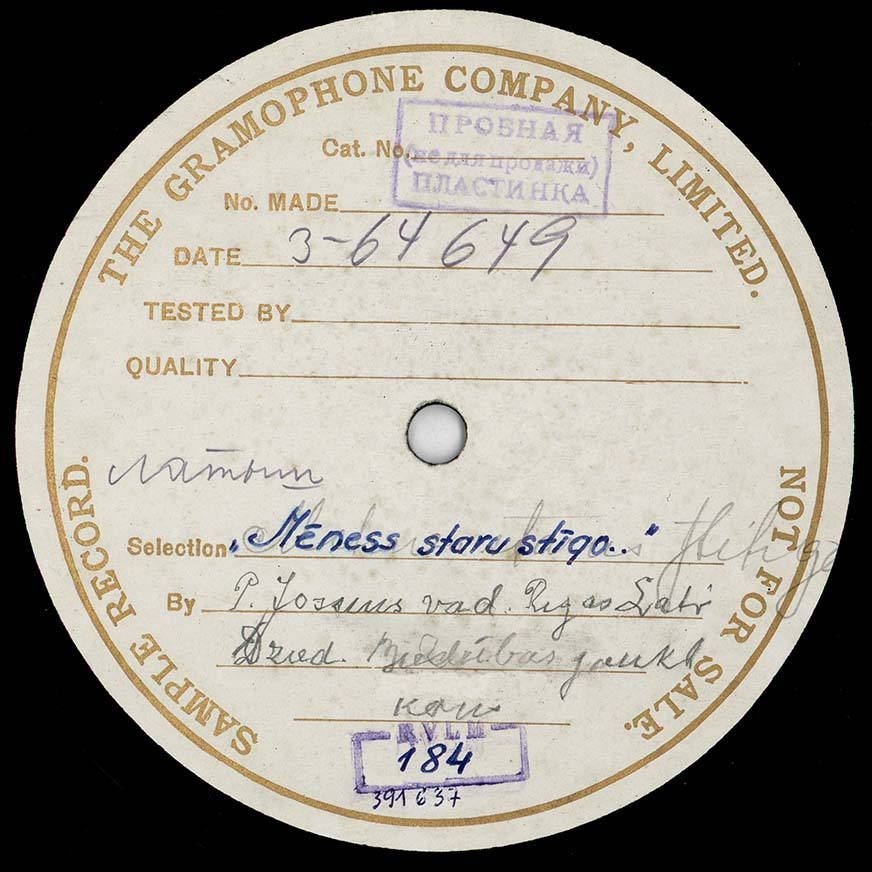 THE GRAMOPHONE COMPANY, LIMITED.
ПРОБНАЯ
(не для продажи)
ПЛАСТИНКА
Cat. No.
No. MADE
DATE 3-64 649
TESTED BY
QUALITY
SAMPLE RECORD.
NOT FOR SALE.
Selection „Mēness staru stīgo.."
By P. Jossuus vad. Rigas Latv
Dzied. Biedribas jaukt
RVLM
184
391637